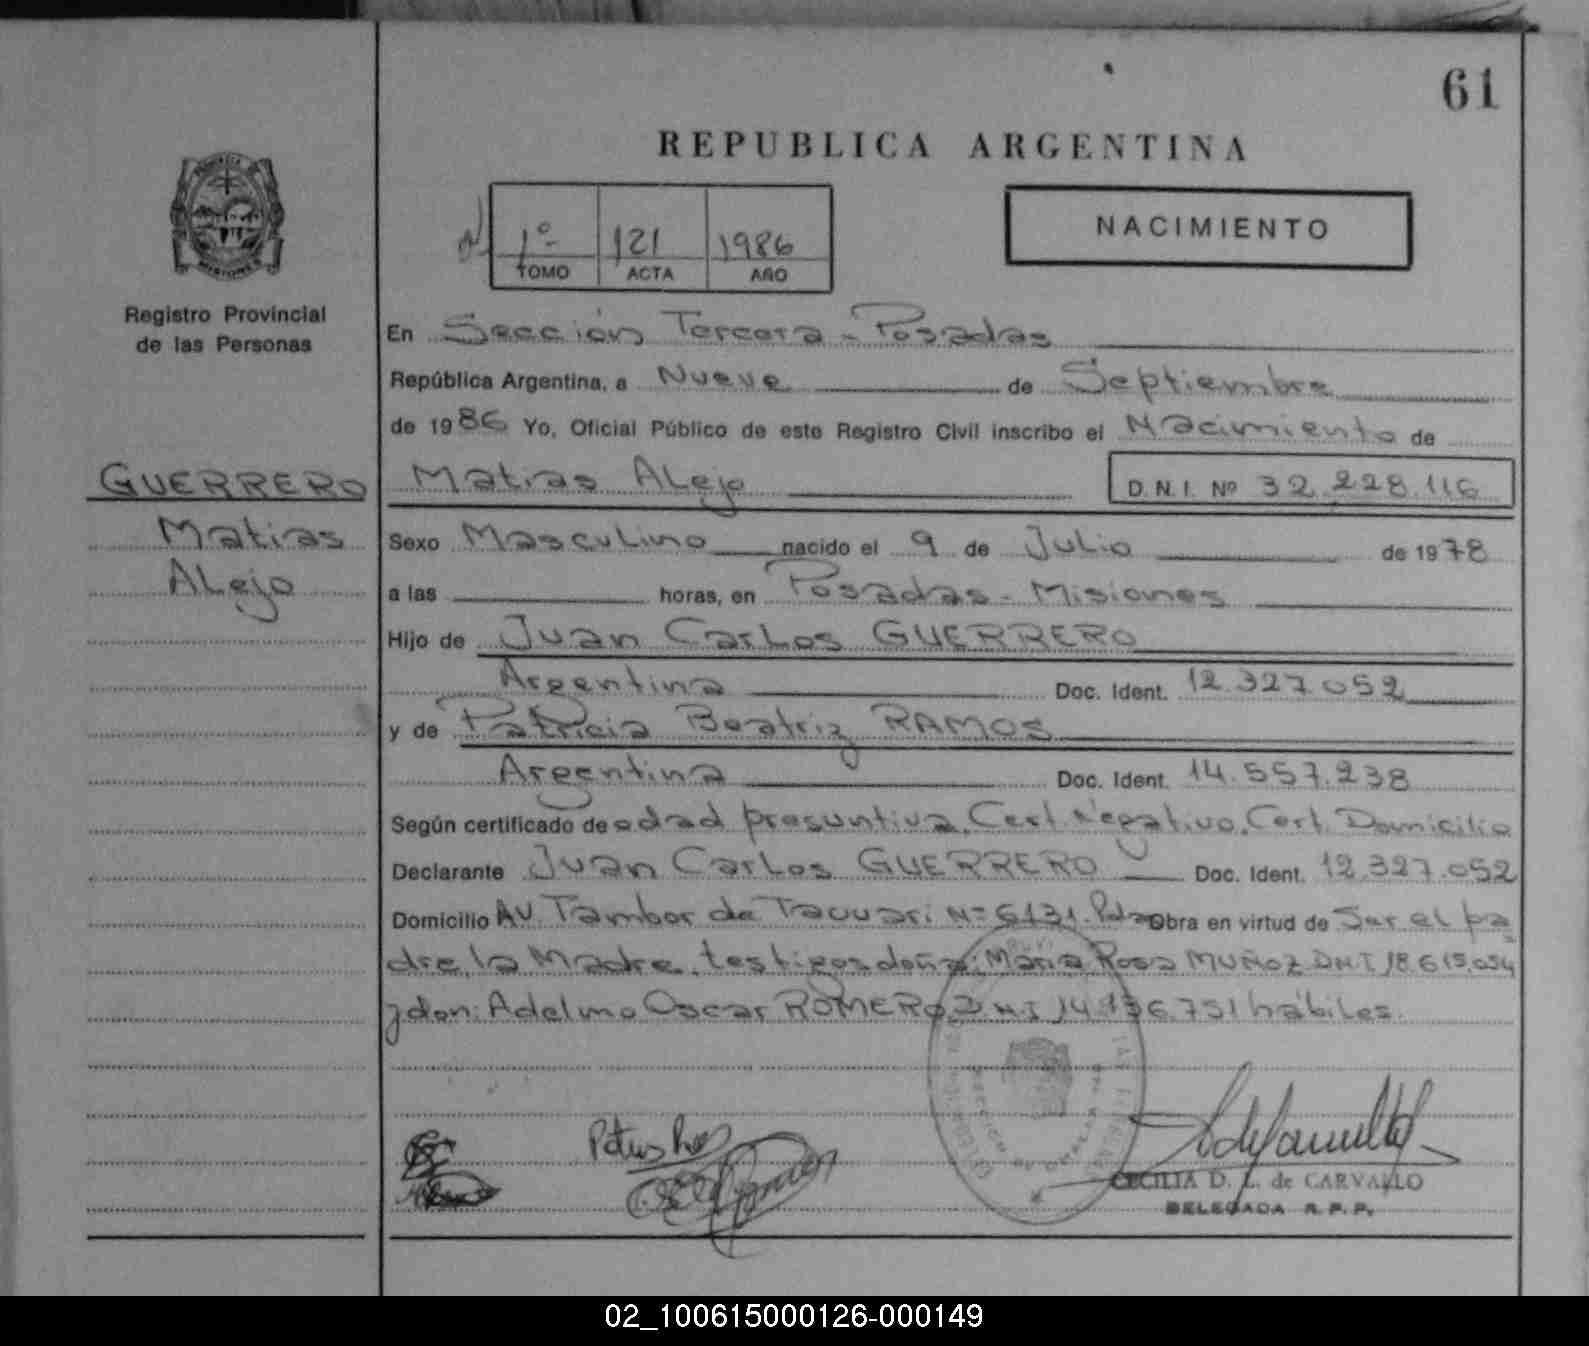 61
REPUBLICA ARGENTINA
1º 121 1986
TOMO ACTA AÑO
NACIMIENTO
Registro Provincial
de las Personas
En Sección Tercera - Posadas
República Argentina, a Nueve de Septiembre
de 1986 Yo, Oficial Público de este Registro Civil inscribo el Nacimiento de
GUERRERO Matias Alejo D.N.I. Nº 32.228.116
Matias
Alejo
Sexo Masculino nacido el 9 de Julio de 1978
a las horas, en Posadas - Misiones
Hijo de Juan Carlos GUERRERO
Argentina Doc. Ident. 12.327.052
y de Patricia Beatriz RAMOS
Argentina Doc. Ident. 14.557.238
Según certificado de edad presuntiva. Cert Negativo. Cert. Domicilio
Declarante Juan Carlos GUERRERO Doc. Ident. 12.327.052
Domicilio AV. Tambor de Tacuari Nº 6131. Pdas Obra en virtud de Ser el pa
dre, la Madre, testigos doña: Maria Rosa MUÑOZ DNI 18.615.054
y don: Adelmo Oscar ROMERO DNI 14.936.751 hábiles.
CECILIA D. L. de CARVALLO
DELEGADA R. P. P.
02_100615000126-000149